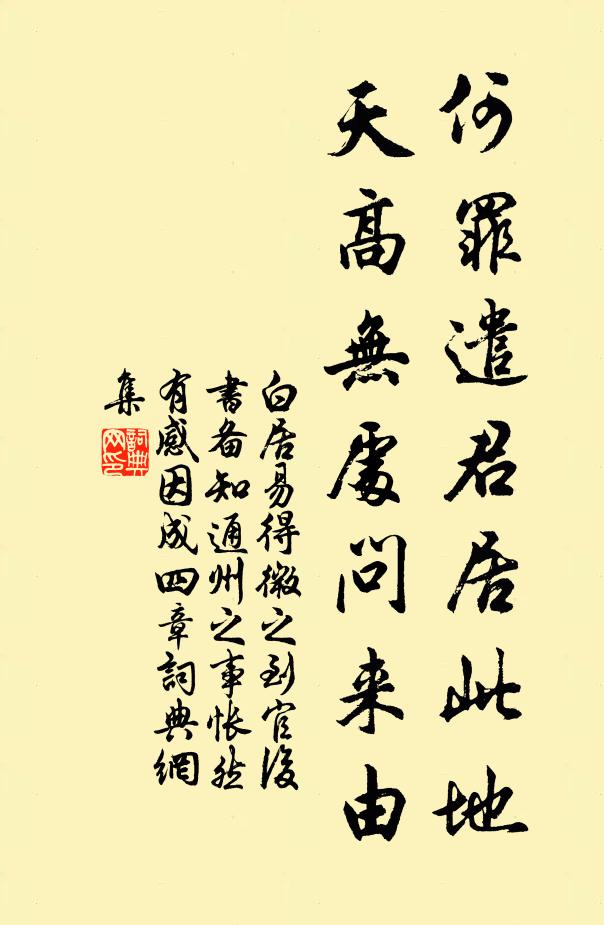 何罪遣君居此地
天高無處問来由
白居易得微之到官後
書备知通州之事悵然
有感因成四章詞典網
集
詞典
网印